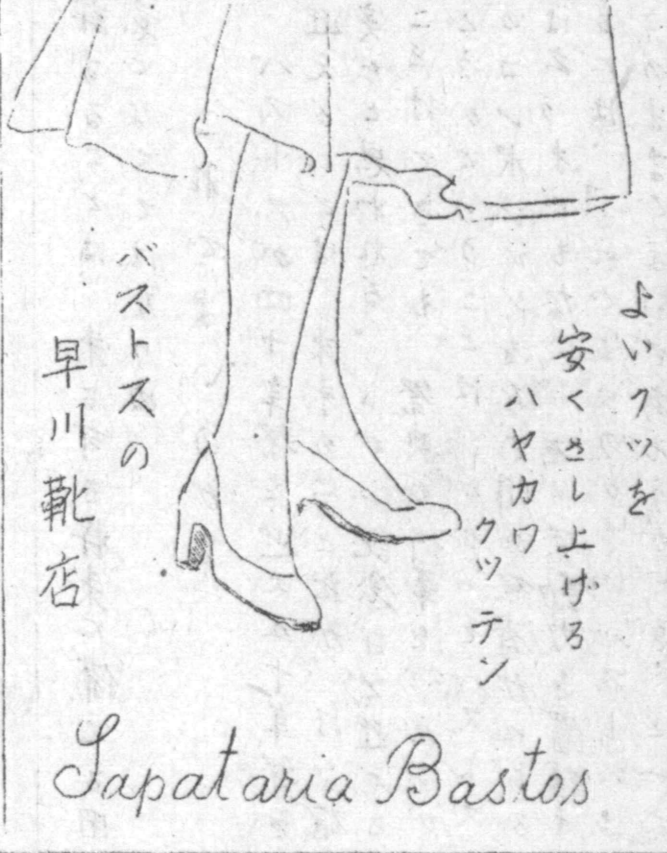 よいクツを
安くさし上げる
ハヤカワ
クツテン
バストスの
早川靴店
Sapataria Bastos